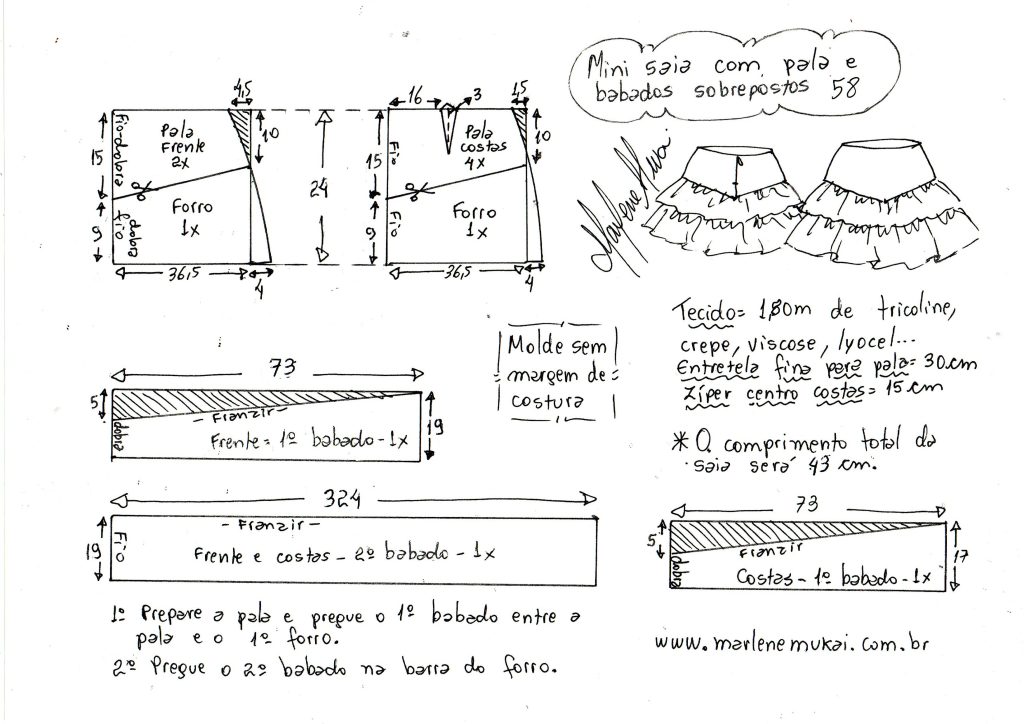 Mini saia com pala e
babados sobrepostos 58
Marlene Mukai
4,5
Fio-dobra
Pala
Frente
2x
10
15
Forro
1x
fio
dobra
9
36,5
4
24
16
3
1,5
Fio
Pala
costas
4x
10
15
Forro
1x
Fio
9
36,5
4
Molde sem
margem de
costura
Tecido= 1,80m de tricoline,
crepe, viscose, lyocel...
Entretela fina para pala= 30cm
Zíper centro costas= 15cm
* O comprimento total da
saia será 43 cm.
73
5
- Franzir -
dobra
Frente= 1º babado-1x
19
324
- Franzir -
19
Fio
Frente e costas - 2º babado - 1x
73
5
Franzir
dobra
Costas - 1º babado - 1x
17
1º Prepare a pala e pregue o 1º babado entre a
pala e o 1º forro.
2º Pregue o 2º babado na barra do forro.
www.marlenemukai.com.br